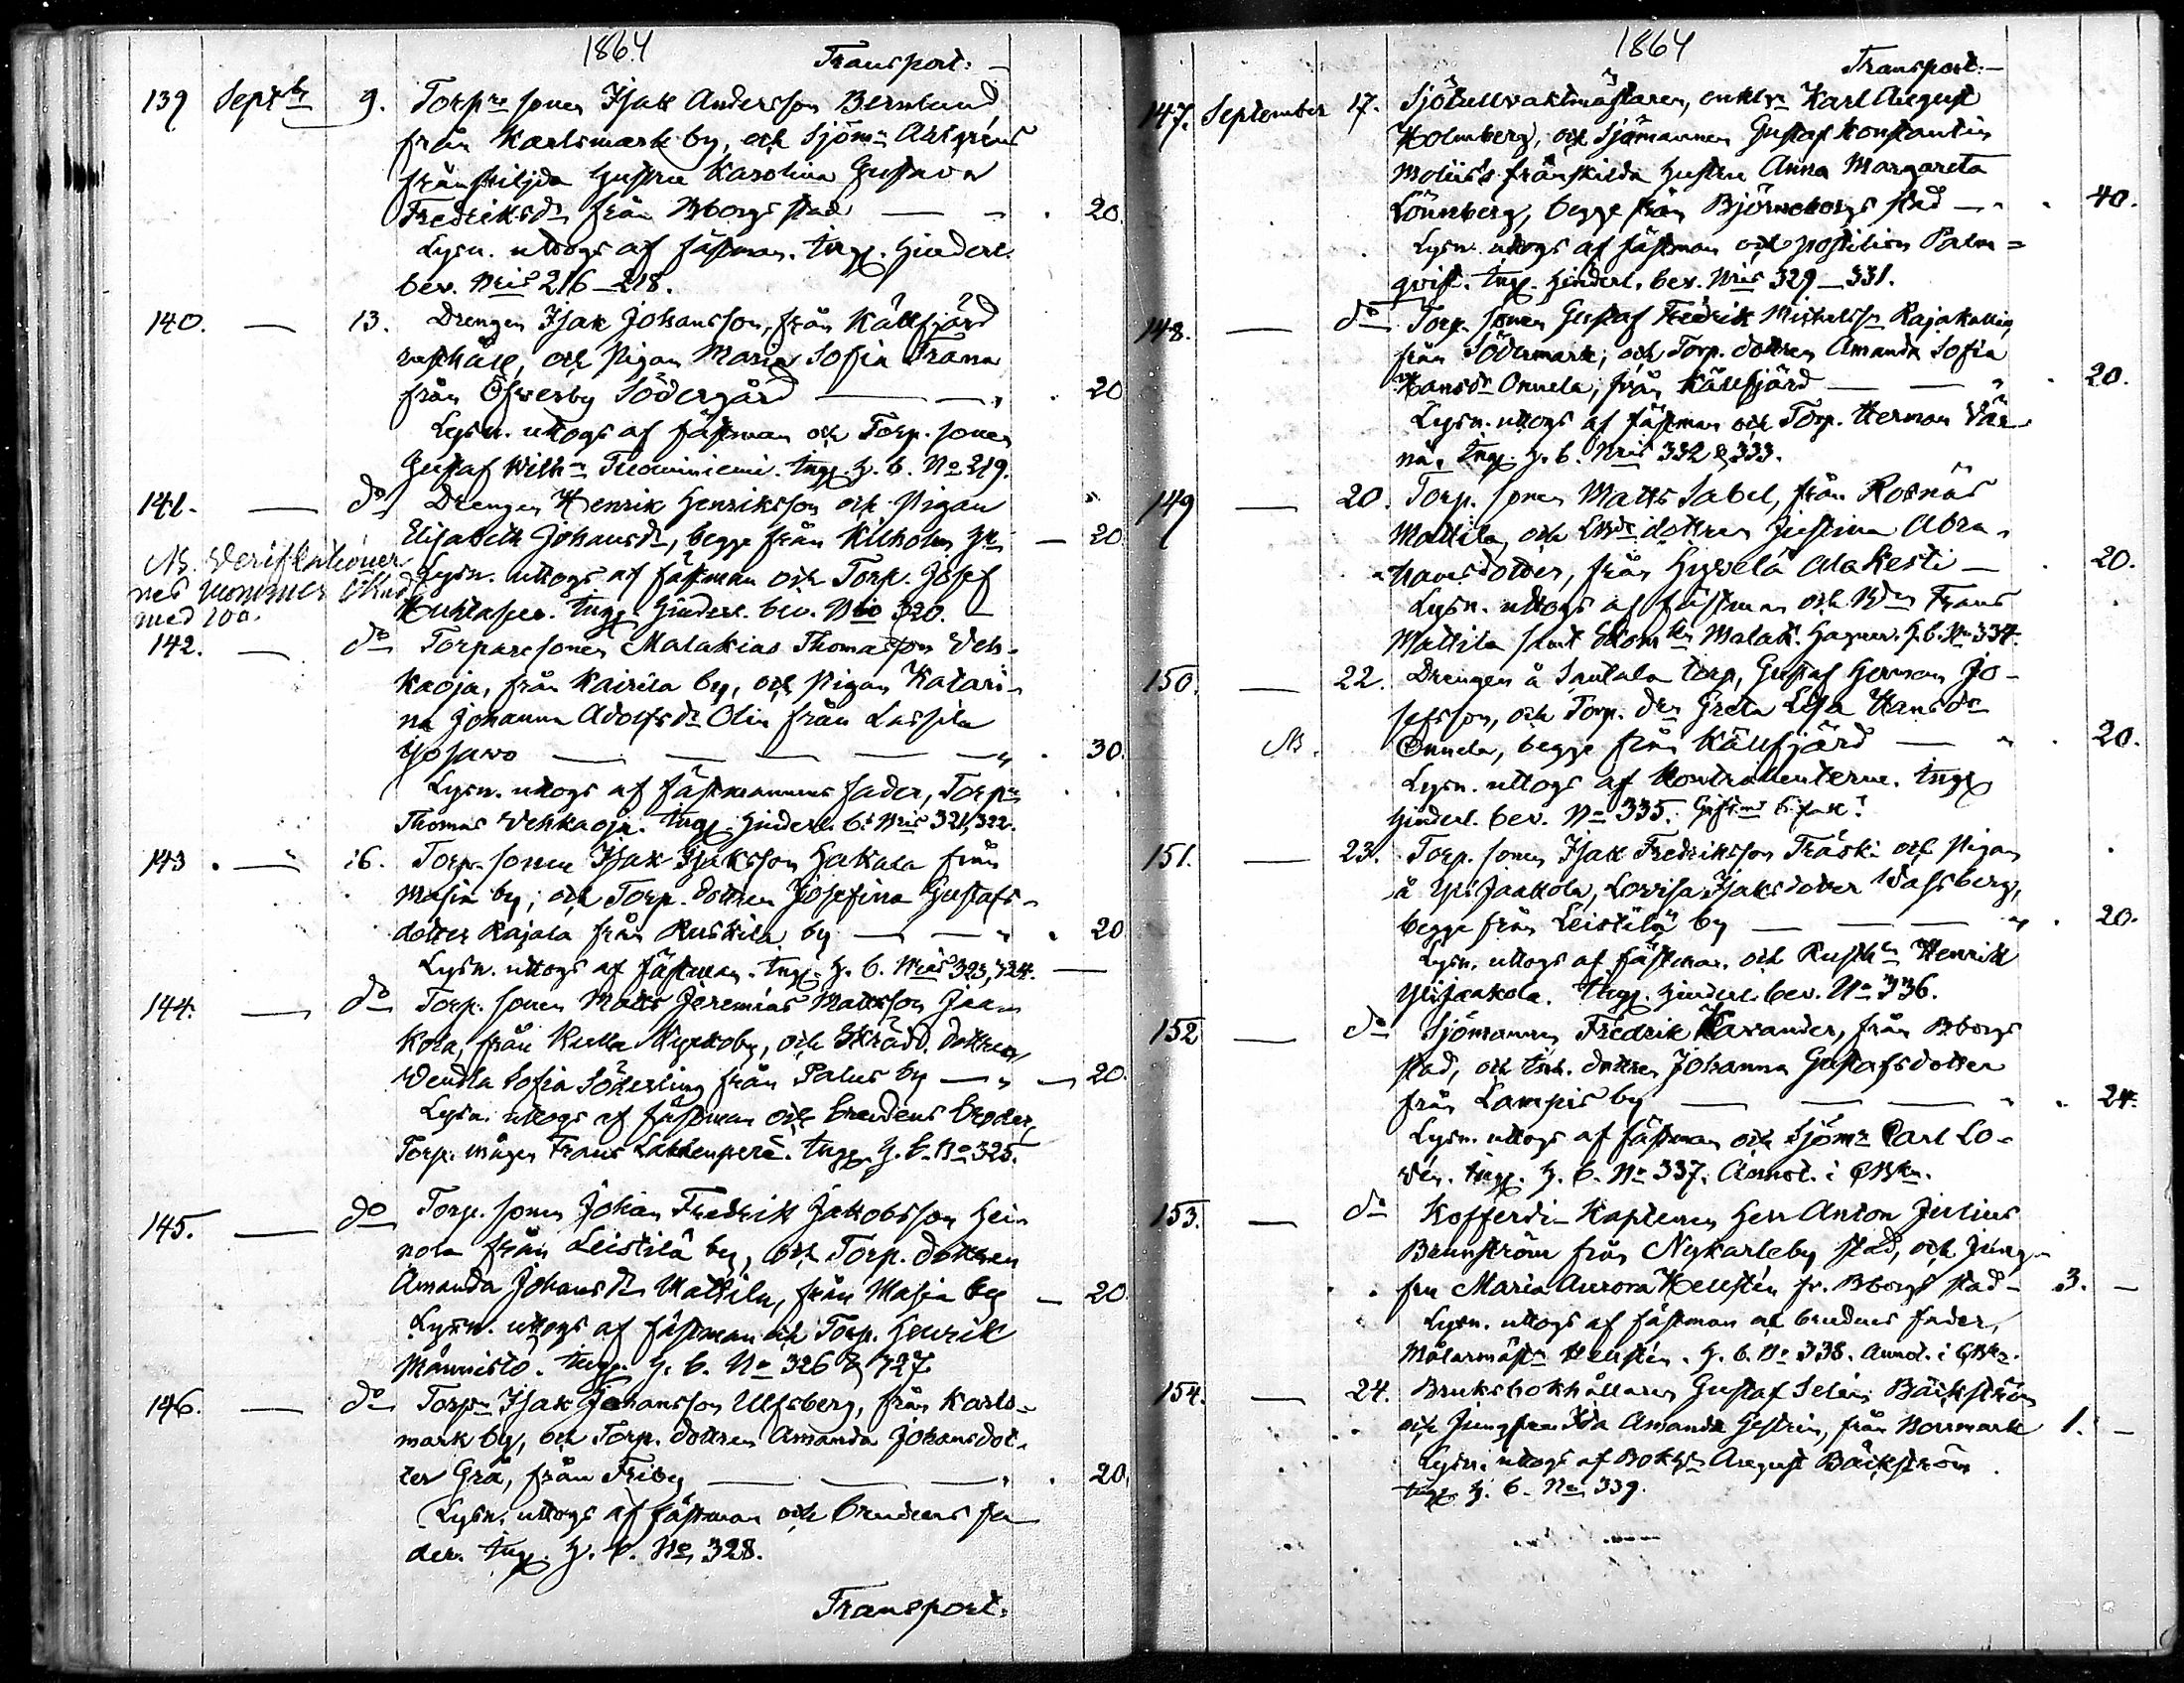 1864
Transport: –
139 Septbr 9. Torpre sonen Isak Andersson Bernlund
från Karlsmark by, och Sjöm:n Ahlgréns
frånskiljda hustru Karolina Gustava
Fredriksdr från Bborgs stad — " . 20.
Lysn. uttogs af fästman. Ingp. hinderl.
bev. Nris 216–218.
140. — 13. Drengen Isak Johansson, från Källfjärd
rusthåll, och Pigan Maria Sofia Frana
från Öfverby Södergård — — " . 20
Lysn. uttogs af fästman och Torp. sonen
Gustaf Wilhm Tuominiemi. Ingp. h. b. No 219.
141. — do Drengen Henrik Henriksson och Pigan
Elisabeth Johansdr, begge från Kilholm — 20
NB. Verifikationer
nes nommer ökad
med 100.
Lysn. uttogs af fästman och Torp. Josef
Huhtaseer. Ingp. hinderl. bev. No 320. —
142. — do Torparesonen Malakias Thomasson Veh-
kaoja, från Kairila by, och Pigan Katari-
na Johanna Adolfsdr Olin från Lassila
Yosawo — — — — — " . 30.
Lysn. uttogs af fästmannens fader, Torpn
Thomas Vehkaoja. Ingp. hinderl. b. Nris 321, 322.
143 . — 16. Torp. sonen Isak Isaksson Hakala från
Masia by; och Torp. dottren Josefina Gustafs-
dotter Rajala från Ruskila by — — " . 20
Lysn. uttogs af fästman. Ingp. h. b. Nris 323, 324. —
144. — do Torp. sonen Matts Jeremias Mattsson Jaa-
kola, från Kulla Nykoby, och Skrädd. dottren
Vendla Sofia Söderling från Palus by — " — 20.
Lysn. uttogs af fästman och brudens broder,
Torp. mågen Frans Lakkenperä. Ingp. h. b. No 325.
145. — do Torp. sonen Johan Fredrik Jakobsson Hei-
nola från Leistilä by, och Torp. dottren
Amanda Johansdr Mattila, från Masia by — 20.
Lysn. uttogs af fästman och Torp. Henrik
Männistö. Ingp. h. b. No 326 & 327
146. — do Torpn Isak Johansson Ulfsberg, från Karls-
mark by, och Torp. dottren Amanda Johansdot-
ter Grå, från Friby — — — " . 20.
Lysn. uttogs af fästman och brudens fa-
der. Ingp. h. b. No 328.
Transport.
1864
Transport: –
147. September 17. Sjötullvaktmästaren, enklr Karl August
Holmberg, och Sjömannen Gustaf Konstantin
Moliis's frånskilda hustru Anna Margareta
Lönnberg, begge från Björneborgs stad — " . 40.
Lysn. uttogs af fästman och postilion Palm=
qvist. Ingp. hinderl. bev. Nris 329–331.
148. — do Torp. sonen Gustaf Fredrik Michelsson Rajakallio,
från Södermark; och Torp. dottren Amanda Sofia
Hansdr Onnela, från Källfjärd — — " . 20.
Lysn. uttogs af fästman och Torp. Herman Vän-
nä. Ingp. h. b. Nris 332 & 333.
149 — 20. Torp. sonen Matts Sabel, från Rosnäs
Mattila, och dottren Justina Abra-
hamsdotter, från Hyvelä Alakesti — . 20.
Lysn. uttogs af fästman och Frans
Mattila samt Malak. Hagner. h. b. No 334.
150. — 22. Drengen å Santala torp, Gustaf Herman Jo-
sefsson, och Torp. drn Greta Lisa Hansdr
NB. Onnela, begge från Källfjärd — " . 20.
Lysn. uttogs af Kontrahenterne. Ingp.
hinderl. bev. No 335.
151. — 23. Torp. sonen Isak Fredriksson Träski och Pigan
å Yli Jaakola, Lovisa Isaksdotter Valsberg,
begge från Leistilä by — — — " . 20.
Lysn. uttogs af fästman och Rusth:n Henrik
Ylijaakola. Ingp. hinderl. bev. No 336.
152 — do Sjömannen Fredrik Kavander, från Bborgs
stad, och dottren Johanna Gustafsdotter
från Lampis by — — — " . 24.
Lysn. uttogs af fästman och Sjöm:n Carl Lo-
vén. Ingp. h. b. No 337. Annot. i
153. — do Kofferdi-Kaptenen Herr Anton Julius
Brunström från Nykarleby stad, och Jung-
fru Maria Aurora Hellstén fr. Bborgs stad – .3. –
Lysn. uttogs af fästman och brudens fader,
Målarmästn Hellstén. h. b. No 338. Annot. i
154. — 24. Bruksbokhållaren Gustaf Selim Bäckström
och Jungfru Ida Amanda Gestrin, från Norrmark 1. –
Lysn. uttogs af Bokhn August Bäckström
Ingp. h. b. No 339.